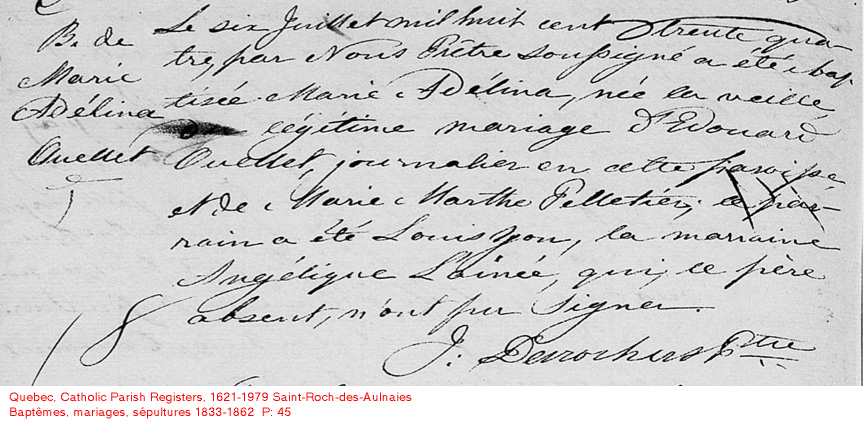 B. de
Marie
Adélina
Ouellet
Le six Juillet mil huit cent trente qua-
tre, par Nous Prêtre soussigné a été bap-
tisée Marie Adélina, née la veille
du légitime mariage d'Edouard
Ouellet, journalier en cette paroisse
et de Marie Marthe Pelletier; le par-
rain a été Louis Yon, la marraine
Angélique Lainée, qui, le père
absent, n'ont pu signer.
J: Derochers Ptre
Quebec, Catholic Parish Registers, 1621-1979 Saint-Roch-des-Aulnaies
Baptêmes, mariages, sépultures 1833-1862 P: 45